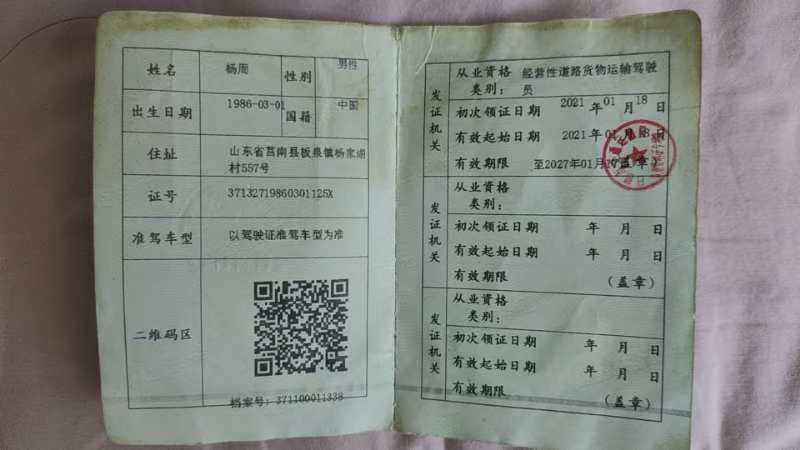 姓名 杨周 性别 男性
出生日期 1986-03-01 国籍 中国
住址 山东省莒南县板泉镇杨家湖
村557号
证号 37132719860301125X
准驾车型 以驾驶证准驾车型为准
二维码区
档案号：371100011338
发证机关
从业资格 经营性道路货物运输驾驶
类别： 员
初次领证日期 2021 年 01 月 18 日
有效起始日期 2021 年 01 月 18 日
有效期限 至2027年01月 （盖章）
发证机关
从业资格
类别：
初次领证日期 年 月 日
有效起始日期 年 月 日
有效期限 （盖章）
发证机关
从业资格
类别：
初次领证日期 年 月 日
有效起始日期 年 月 日
有效期限 （盖章）